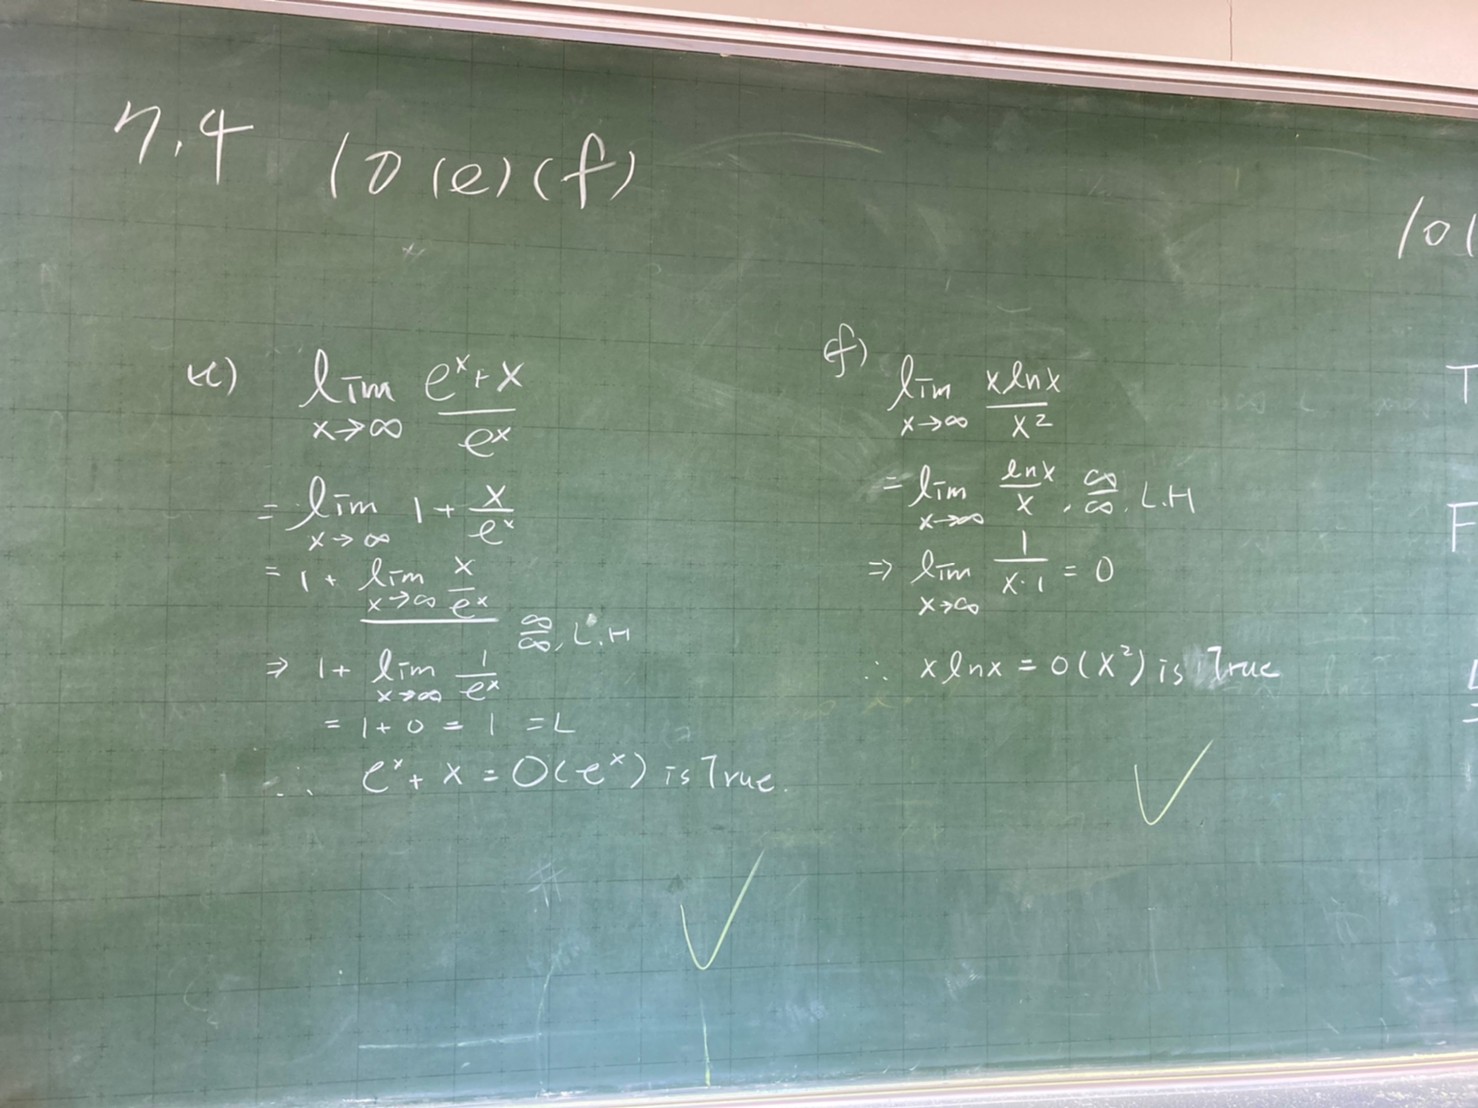 7.4 10 (e) (f)
(e) lim x→∞ (e^x + x)/e^x
= lim x→∞ 1 + x/e^x
= 1 + lim x→∞ x/e^x
∞/∞, L.H
⇒ 1 + lim x→∞ 1/e^x
= 1 + 0 = 1 = L
∴ e^x + x = O(e^x) is True.
(f) lim x→∞ xlnx/x^2
= lim x→∞ lnx/x , ∞/∞, L.H
⇒ lim x→∞ 1/(x·1) = 0
∴ xlnx = o(x^2) is True
10(
T
F